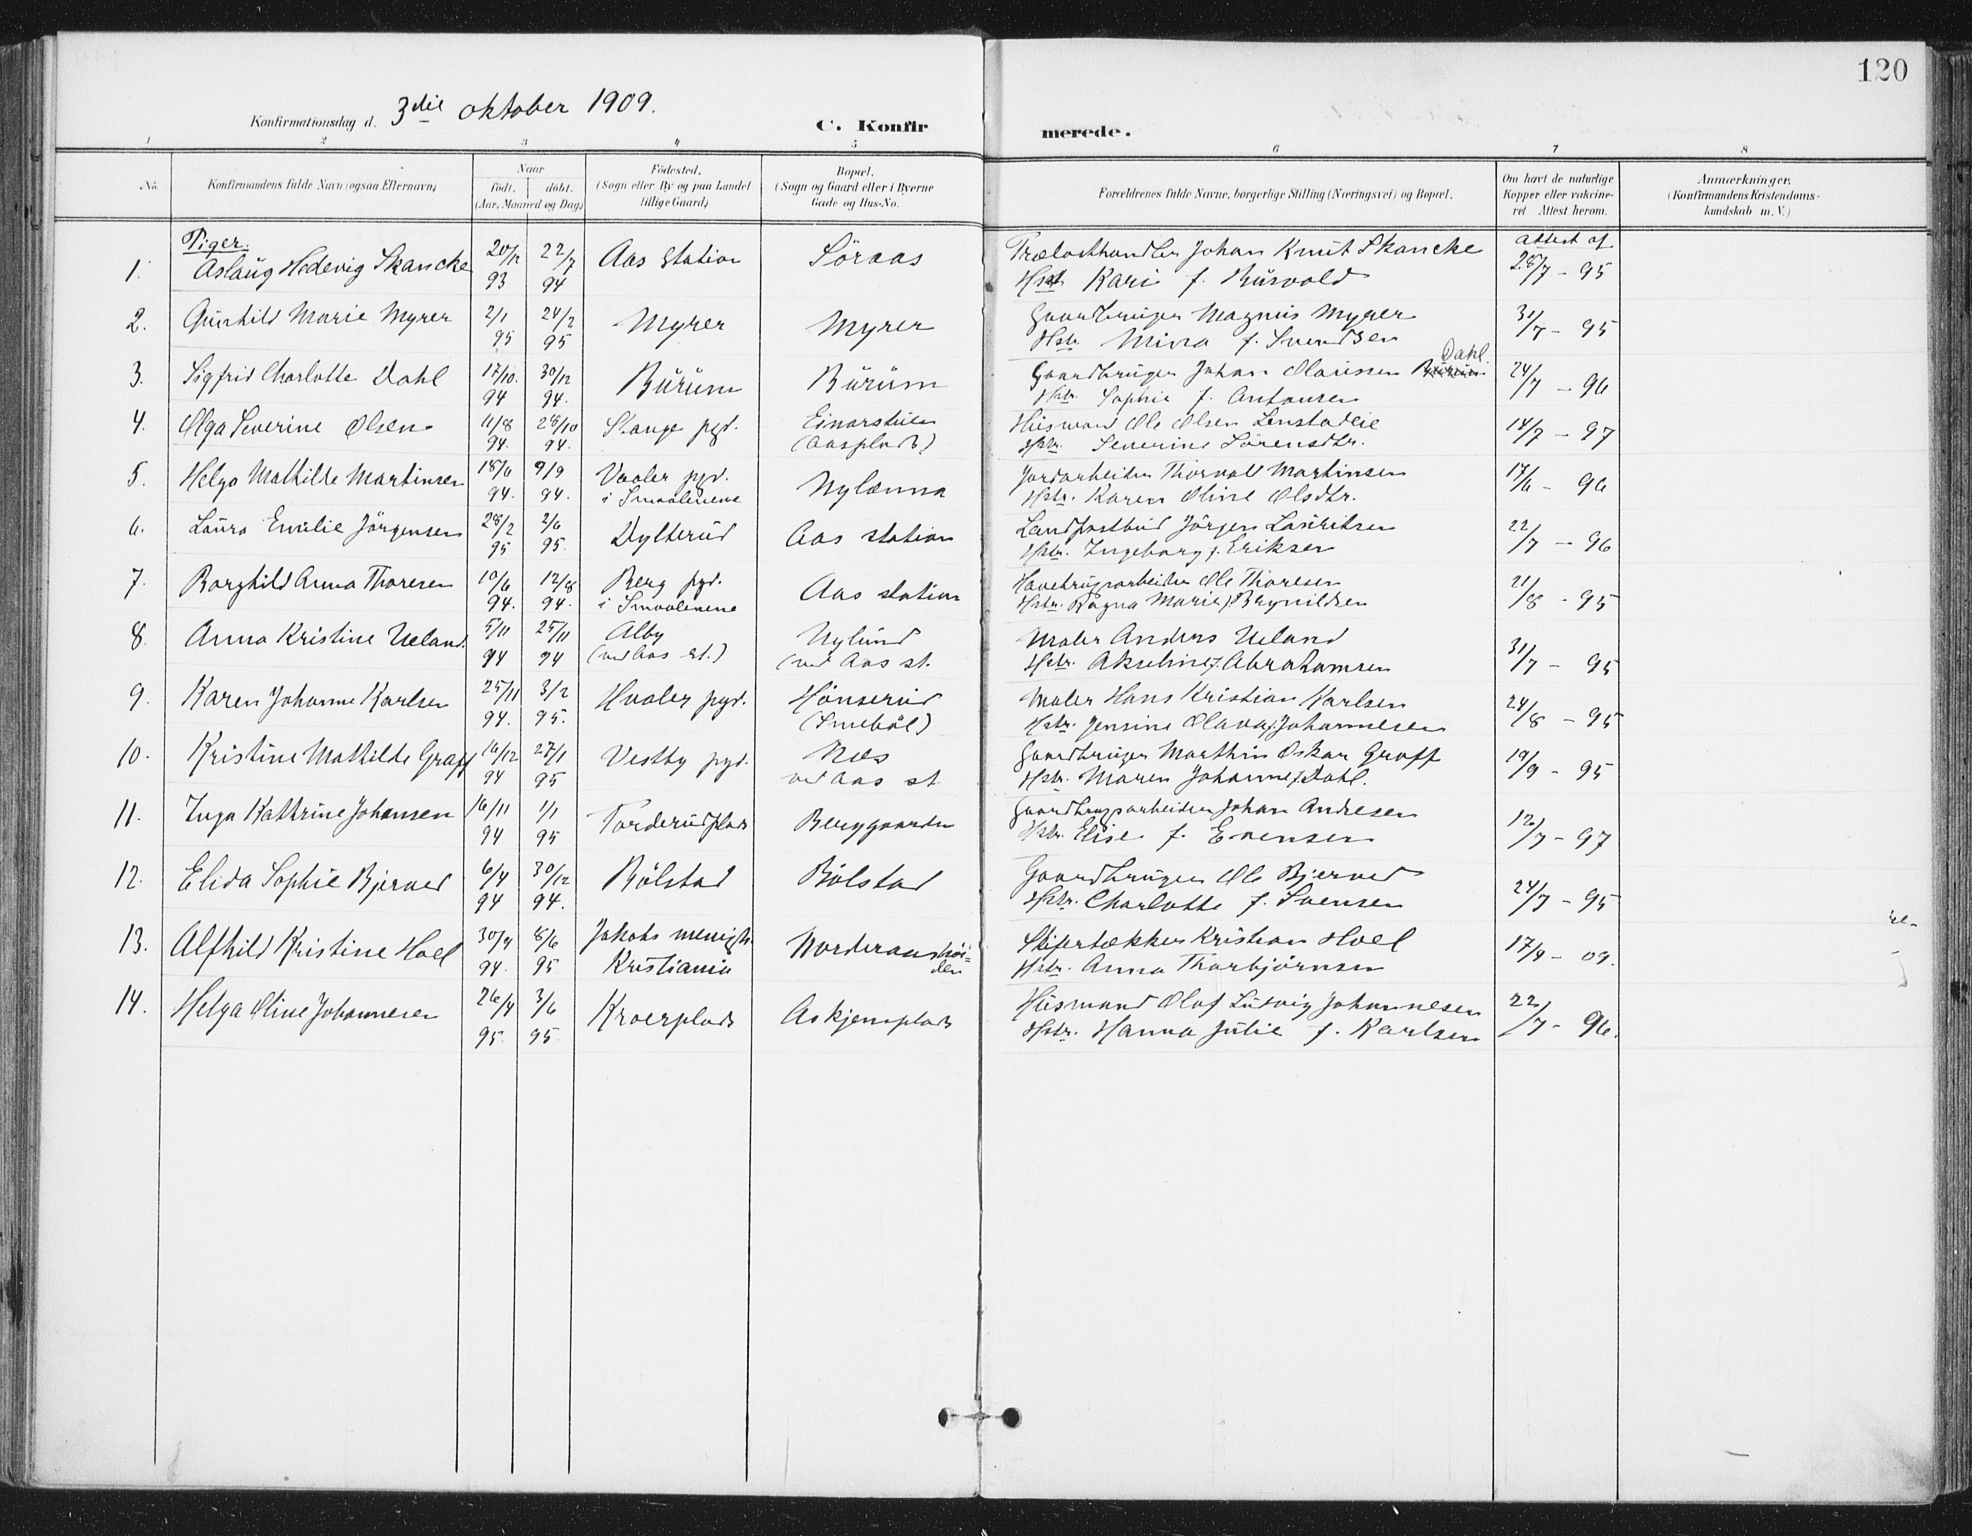 120
Konfirmationsdag d. 3die oktober 1909.
C. Konfirmerede.
1 2 3 4 5 6 7 8
No.
Konfirmandens fulde Navn (ogsaa Efternavn)
Naar
født. døbt.
(Aar, Maaned og Dag)
Fødested.
(Sogn eller By og paa Landet
tillige Gaard)
Bopæl.
(Sogn og Gaard eller i Byerne
Gade og Hus-No.
Forældrenes fulde Navne, borgerlige Stilling (Næringsvei) og Bopæl.
Om havt de naturlige
Kopper eller vakcine-
ret Attest herom.
Anmærkninger.
(Konfirmandens Kristendoms-
kundskab m. V.)
Piger.
1. Aslaug Hedevig Skancke 20/12 93 22/7 94 Aas station Söraas
Trælasthandler Johan Knut Skancke
Hstr. Kari f. Rusvold
attest af 28/7 - 95
2. Gunhild Marie Myrer 2/1 95 24/2 95 Myrer Myrer
Gaardbruger Magnus Myrer
Hstr. Minna f. Svendsen
31/7 - 95
3. Sigfrid Charlotte Dahl 17/10. 94 30/12 94. Burum Burum
Gaardbruger Johan Olaussen Dahl.
Hstr. Sophie f. Antonsen
24/7 - 96
4. Olga Severine Olsen 11/8 94. 28/10 94. Stange pgd. Einarstuen
(Aasplads)
Husmand Ole Olsen
Hstr. Severine Sörensdtr.
14/7 - 97
5. Helga Mathilde Martinsen 18/6 94. 9/9 94. Vaaler pgd.
i Smaalenene Nylænna
Jordarbeider Thorvald Martinsen
Hstr. Karen Oline Olsdtr.
17/6 - 96
6. Laura Emilie Jörgensen 28/2 95 2/6 95. Dylterud Aas station
Landpostbud Jörgen Lauritsen
Hstr. Ingeborg f. Eriksen
22/7 - 96
7. Borghild Anna Thoresen 10/6 94. 12/8 94. Berg pgd.
i Smaalenene Aas station
Havebrugsarbeider Ole Thoresen
Hstr. Ragna Marie f. Brynildsen
21/8 - 95
8. Anna Kristine Ueland. 5/11 94 25/11 94 Alby
(ved Aas st.) Nylund
(ved Aas st.
Maler Anders Ueland
Hstr. Akseline f. Abrahamsen
31/7 - 95
9. Karen Johanne Karlsen 25/11 94. 3/2 95. Hvaler pgd. Hönserud
(Sneböl)
Maler Hans Kristian Karlsen
Hstr. Jensine Olava f. Johannesen
24/8 - 95
10. Kristine Mathilde Graff 16/12 94 27/1 95 Vestby pgd. Næs
ved Aas st
Gaardbruger Marthin Oskar Graff
Hstr. Maren Johanne f. Dahl.
19/9 - 95
11. Inga Kathrine Johansen 16/11 94 1/1 95 Torderudplads Berggaarden
Gaardbrugsarbeider Johan Andresen
Hstr. Elise f. Evensen
12/7 - 97
12. Elida Sophie Bjerved 6/4 94 30/12 94. Bölstad Bölstad
Gaardbruger Ole Bjerved
Hstr. Charlotte f. Svensen
24/7 - 95
13. Alfhild Kristine Hoel 30/4 94. 8/6 95 Jakobs menigh.
Kristiania Norderaashöi-
den
Skifertækker Kristian Hoel
Hstr. Anna Thorbjörnsen
17/9 - 09.
14. Helga Oline Johannesen 26/4 95. 3/6 95. Kroerplads Askjemplads
Husmand Olaf Ludvig Johannesen
Hstr. Hanna Julie f. Karlsen
22/7 - 96.